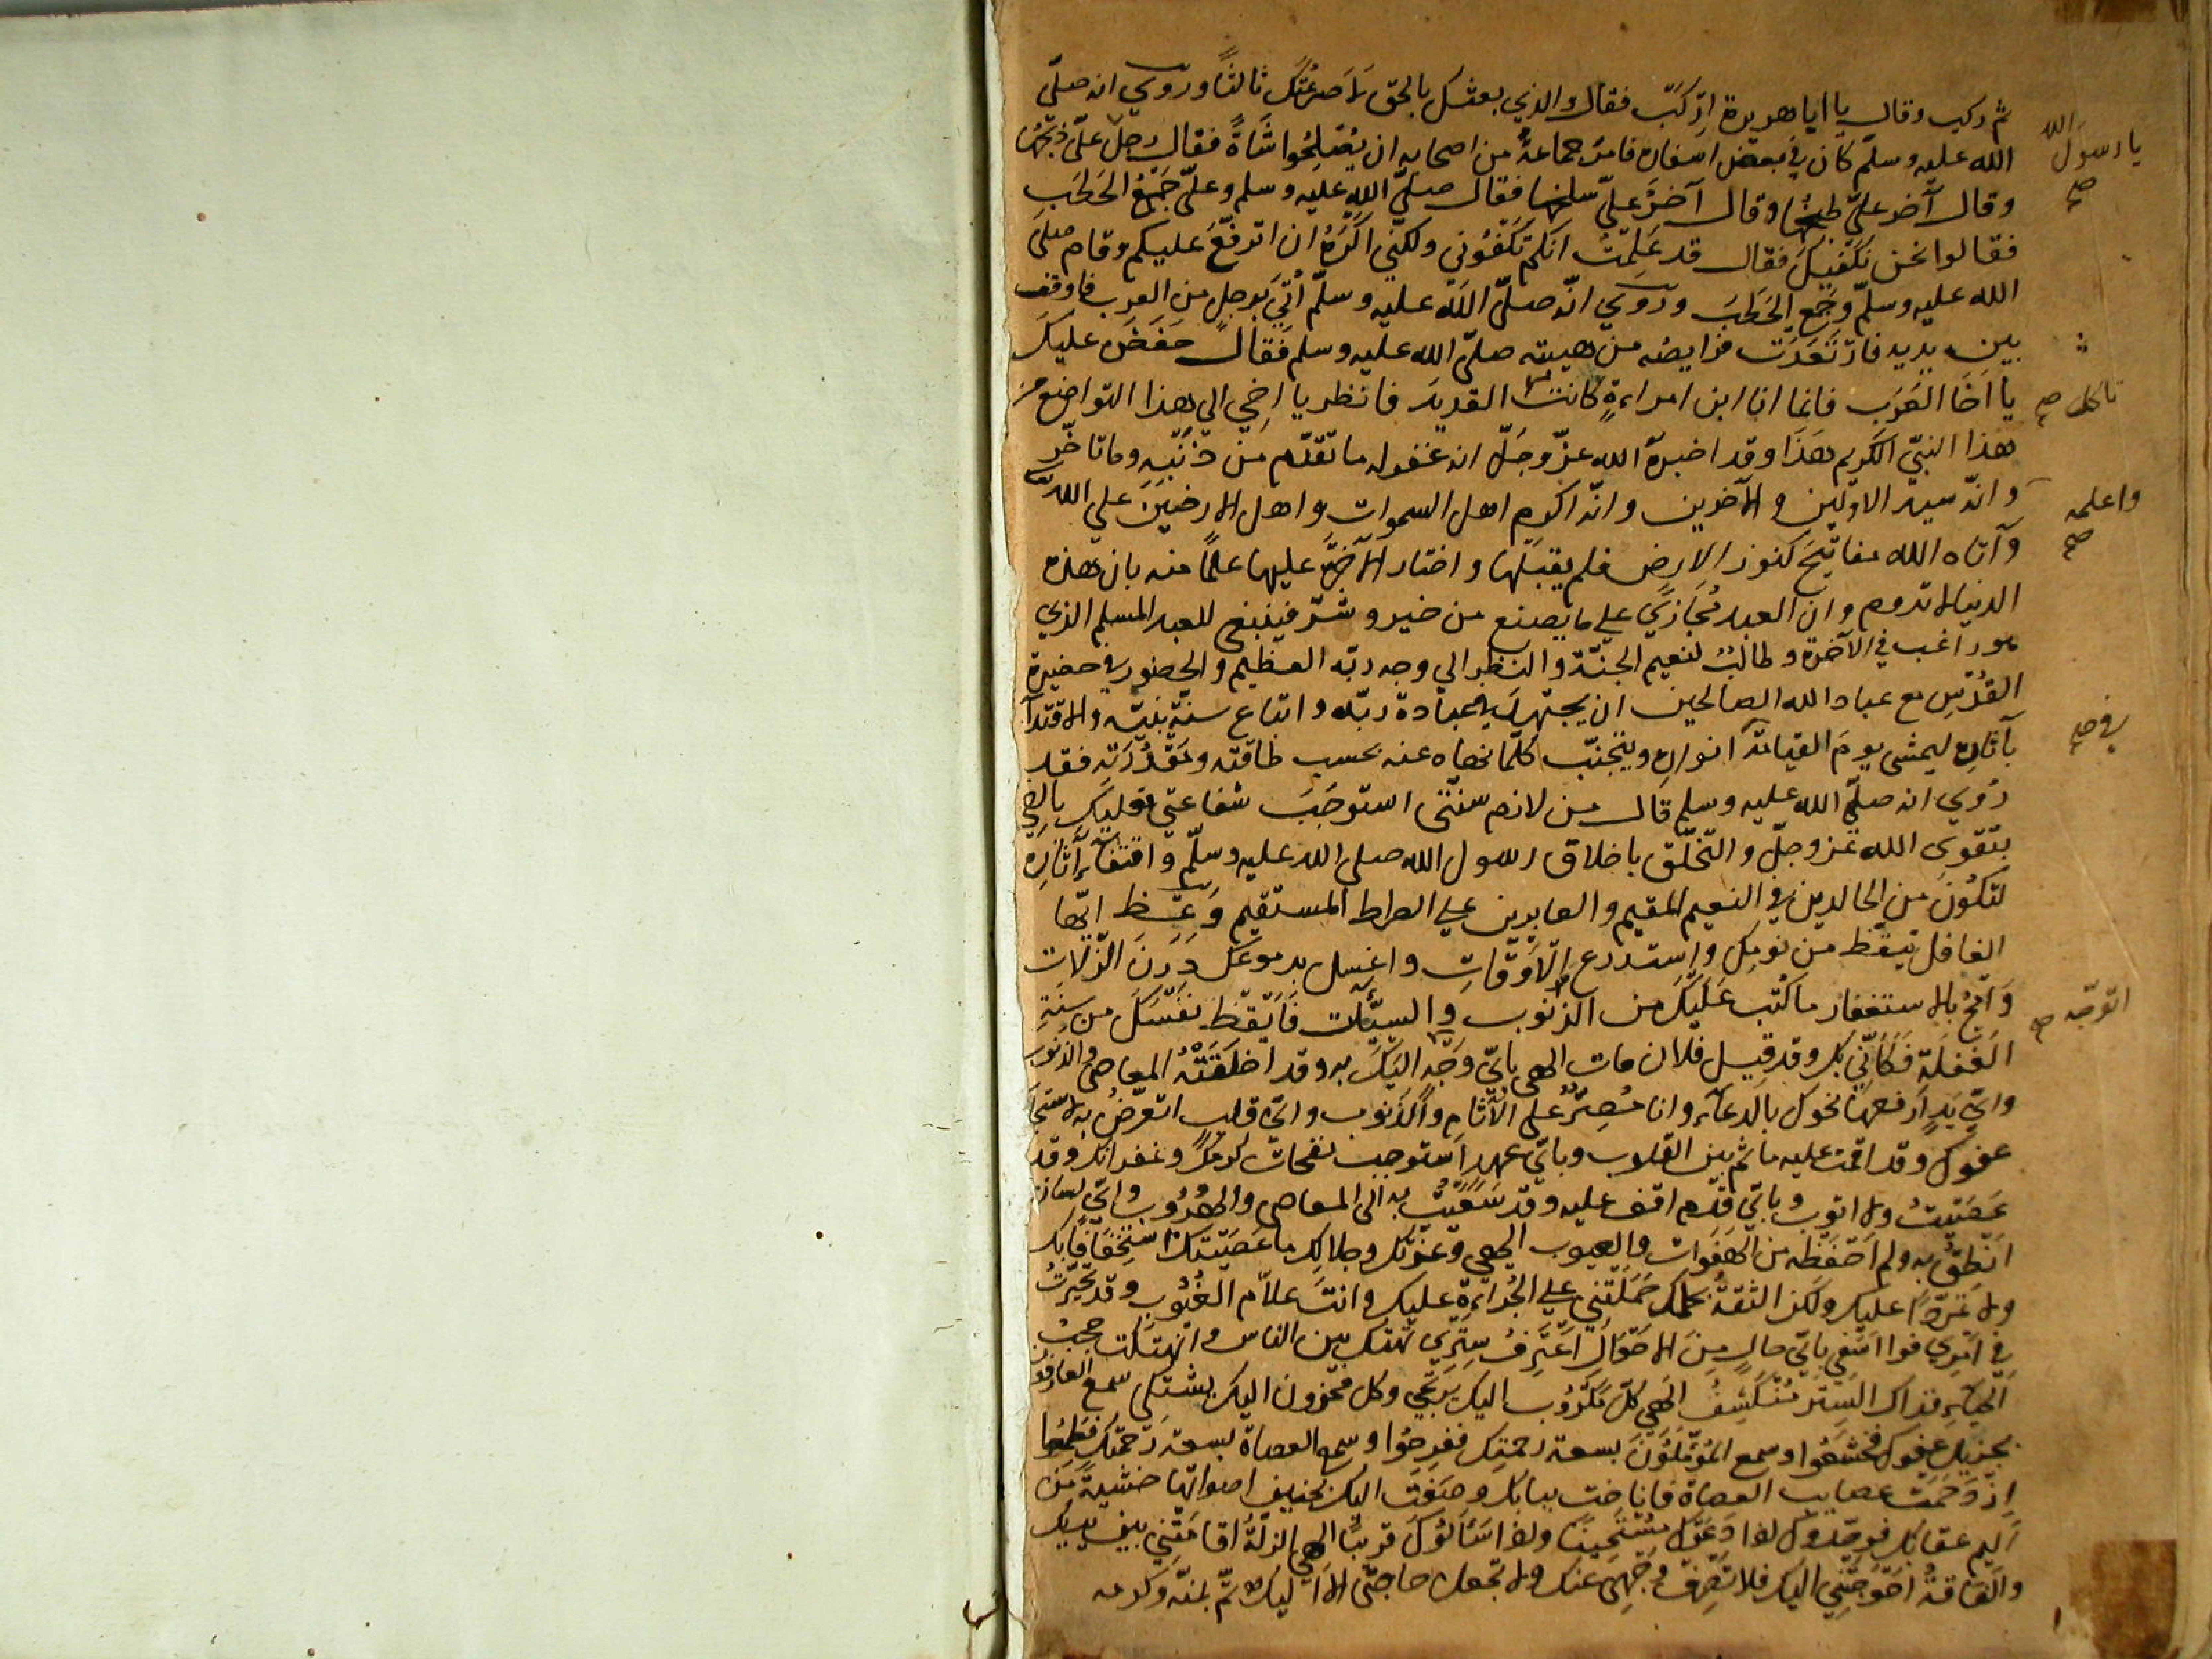 ثم ركب وقال يا ابا هريرة اركب فقال والذي بعثك بالحق لا صرعتك ثالثا وروي انه صلى
الله عليه وسلم كان في بعض اسفاره فامر جماعة من اصحابه ان يصلحوا شاة فقال رجل علي ذبحها
يا رسول الله صح
وقال آخر علي طبخها وقال آخر علي سلخها فقال صلى الله عليه وسلم وعلي جمع الحطب
فقالوا نحن نكفيك فقال قد علمت انكم تكفوني ولكني اكره ان اترفع عليكم وقام صلى
الله عليه وسلم وجمع الحطب وروي انه صلى الله عليه وسلم أتي برجل من العرب فاوقف
بين يديه فارتعدت فرايصه من هيبته صلى الله عليه وسلم فقال خفض عليك
يا اخا العرب فانما انا ابن امراءة كانت القديد فانظر يا اخي الي هذا التواضع من
تاكل صح
هذا النبي الكريم هذا وقد اخبره الله عز وجل انه غفر له ما تقدم من ذنبه وما تاخر
وانه سيد الاولين والآخرين وانه اكرم اهل السموات واهل الارضين علي الله
واعلمه صح
وآتاه الله مفاتيح كنوز الارض فلم يقبلها واختار الآخرة عليها علما منه بان هذه
الدنيا لا تدوم وان العبد مجازي علي ما يصنع من خير وشر فينبغي للعبد المسلم الذي
هو راغب في الآخرة وطالب لنعيم الجنة والنظر الي وجه ربه العظيم والحضور في حضيرة
القدس مع عباد الله الصالحين ان يجتهد في عبادة ربه واتباع سنة نبيه والاقتدآ
بآثاره ليمشي يوم القيامة انواره ويتجنب كلما نهاه عنه بحسب طاقته ومقدرته فقد
في صح
روي انه صلى الله عليه وسلم قال من لازم سنتي استوجب شفاعتي فعليك يا اخي
بتقوى الله عز وجل والتخلق باخلاق رسول الله صلى الله عليه وسلم واقتفآء آثاره
لتكون من الخالدين في النعيم المقيم والعابرين علي الصراط المستقيم ايها
الغافل تيقظ من نومك واستدرع الاوقات واغسل بدموعك درن الزلات
وامح بالاستغفار ما كتب عليك من الذنوب والسيئات فايقظ نفسك من سنة
الغفلة فكأني بك وقد قيل فلان مات الهي باي وجه اليك به وقد اخلقته المعاصي والذنوب
اتوجه صح
واي يد ارفعها نحوك بالدعآء وانا مصر علي الآثام والذنوب واي قلب اتعرض به
عفوك وقد اقمت عليه ماثم بين القلوب وباي عهد استوجب نفحات كرمك وغفرانك وقد
عصيت ولا اتوب وباي قدم اقف عليه وقد سعيت به الى المعاصي والهروب واي لسان
انطق به ولم احفظه من الهفوات والعيوب الهي وعزتك وجلالك ما عصيتك استخفافا بك
ولا عليك ولكن الثقة بحلمك حملتني علي الجراءة عليك وانت علام الغيوب وقد تحيرت
في امري فوا اسفي باي حال من الاحوال اعترف ستري تهتك بين الناس وانهتكت حجب
الحياء فذاك الستر منكشف الهي كل مكروب اليك يرتجي وكل محزون اليك يشتكي سمع العارفون
بجزيل عفوك فخشعوا وسمع المؤملون بسعة رحمتك ففرحوا وسمع العصاة بسعة رحمتك فطمعوا
ازدحمت عصايب العصاة فاناخت ببابك وضجت اليك اصواتها خشية من
اليم عقابك فوجدوك لما دعوك مستجيبا ولما سألوك قريبا الهي الزلة اقامتني بين يديك
والفاقة احوجتني اليك فلا تصرف وجهي عنك ولا تجعل حاجتي الا اليك تم بمنه وكرمه